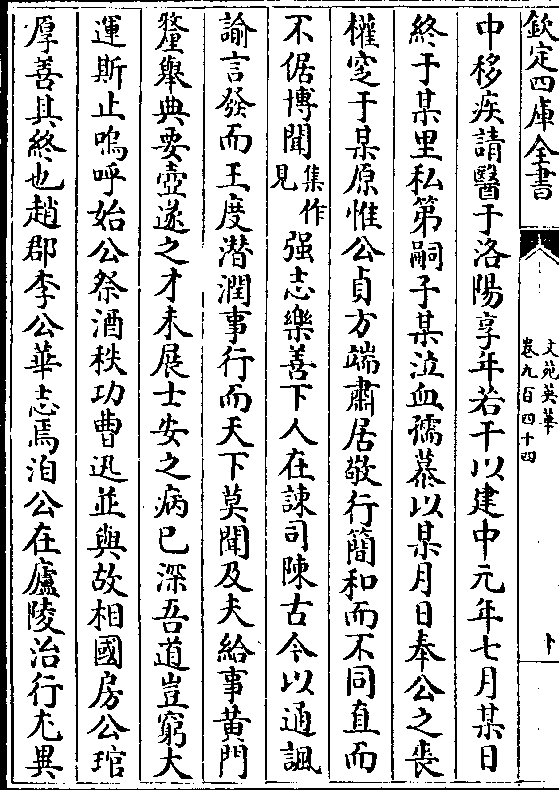 欽定四庫全書
文苑英華
卷九百四十四
中移疾請醫于洛陽享年若干以建中元年七月某日
終于某里私第嗣子某泣血孺慕以某月日奉公之喪
權窆于某原惟公貞方端肅居敬行簡和而不同直而
不倨博聞集作見强志樂善下人在諫司陳古今以通諷
諭言發而王度潛潤事行而天下莫聞及夫給事黄門
釐舉典要壺遂之才未展士安之病已深吾道豈窮大
運斯止嗚呼始公祭酒秩功曹迅並與故相國房公琯
厚善其終也趙郡李公華志焉洎公在廬陵治行尤異